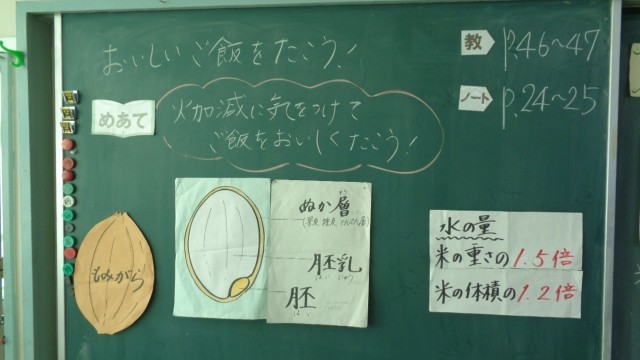 おいしいご飯をたこう!
教 p.46~47
ノート p.24~25
めあて
火加減に気をつけて
ご飯をおいしくたこう!
もみがら
ぬか層
そう
胚乳
はいにゅう
胚
はい
水の量
米の重さの1.5倍
米の体積の1.2倍